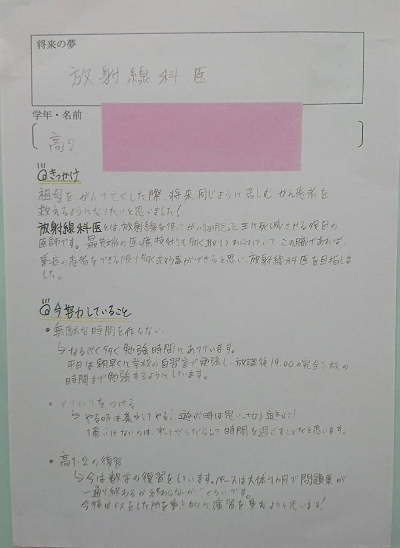 将来の夢
放射線科医
学年・名前
高2
きっかけ
祖母をがんで亡くした際、将来同じように苦しむがん患者を
救えるようになりたいと思いました!
放射線科医とは、放射線を使ってがん細胞を主に死滅させる役目の
医師です。最先端の医療技術も多く取り入れられていてこの職であれば、
患者をできる限り多く救う事ができると思い、放射線科医を目指しま
した。
今努力していること
• 無駄な時間を作らない
→なるべく多く勉強時間にあてています。
平日は朝早くに学校の自習室で勉強し、放課後19:00の完全下校の
時間まで勉強するようにしています。
• メリハリをつける
→やる時は集中してやる。遊ぶ時は思いっきり遊ぶ!
1番いけないのは、だらだらして時間を過ごすことだと思います。
• 高1・2の復習
→今は数学の復習をしています。ペースは大体1か月で問題集が
一通り終わるか終わらないかくらいです。
今後は
演習を
ようと思います!